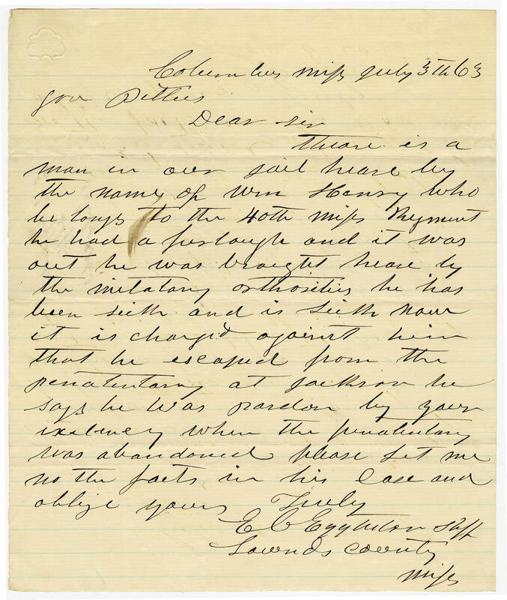 Columbus Miss July 3th 63
gov Pettus
Dear sir
theare is a
man in our jail heare by
the name of Wm Henry who
be longs to the 40th Miss Regment
he had a furlough and it was
out he was brought heare by
the melatary orthosities he has
been sick and is sick now
it is charged against him
that he escaped from the
penatentary at Jackson he
says he was pardon by your
exelency when the penatentary
was abandoned please let me
no the facts in his case and
oblige yours Truly
E C Eggleston Shff
Lownds County
Miss